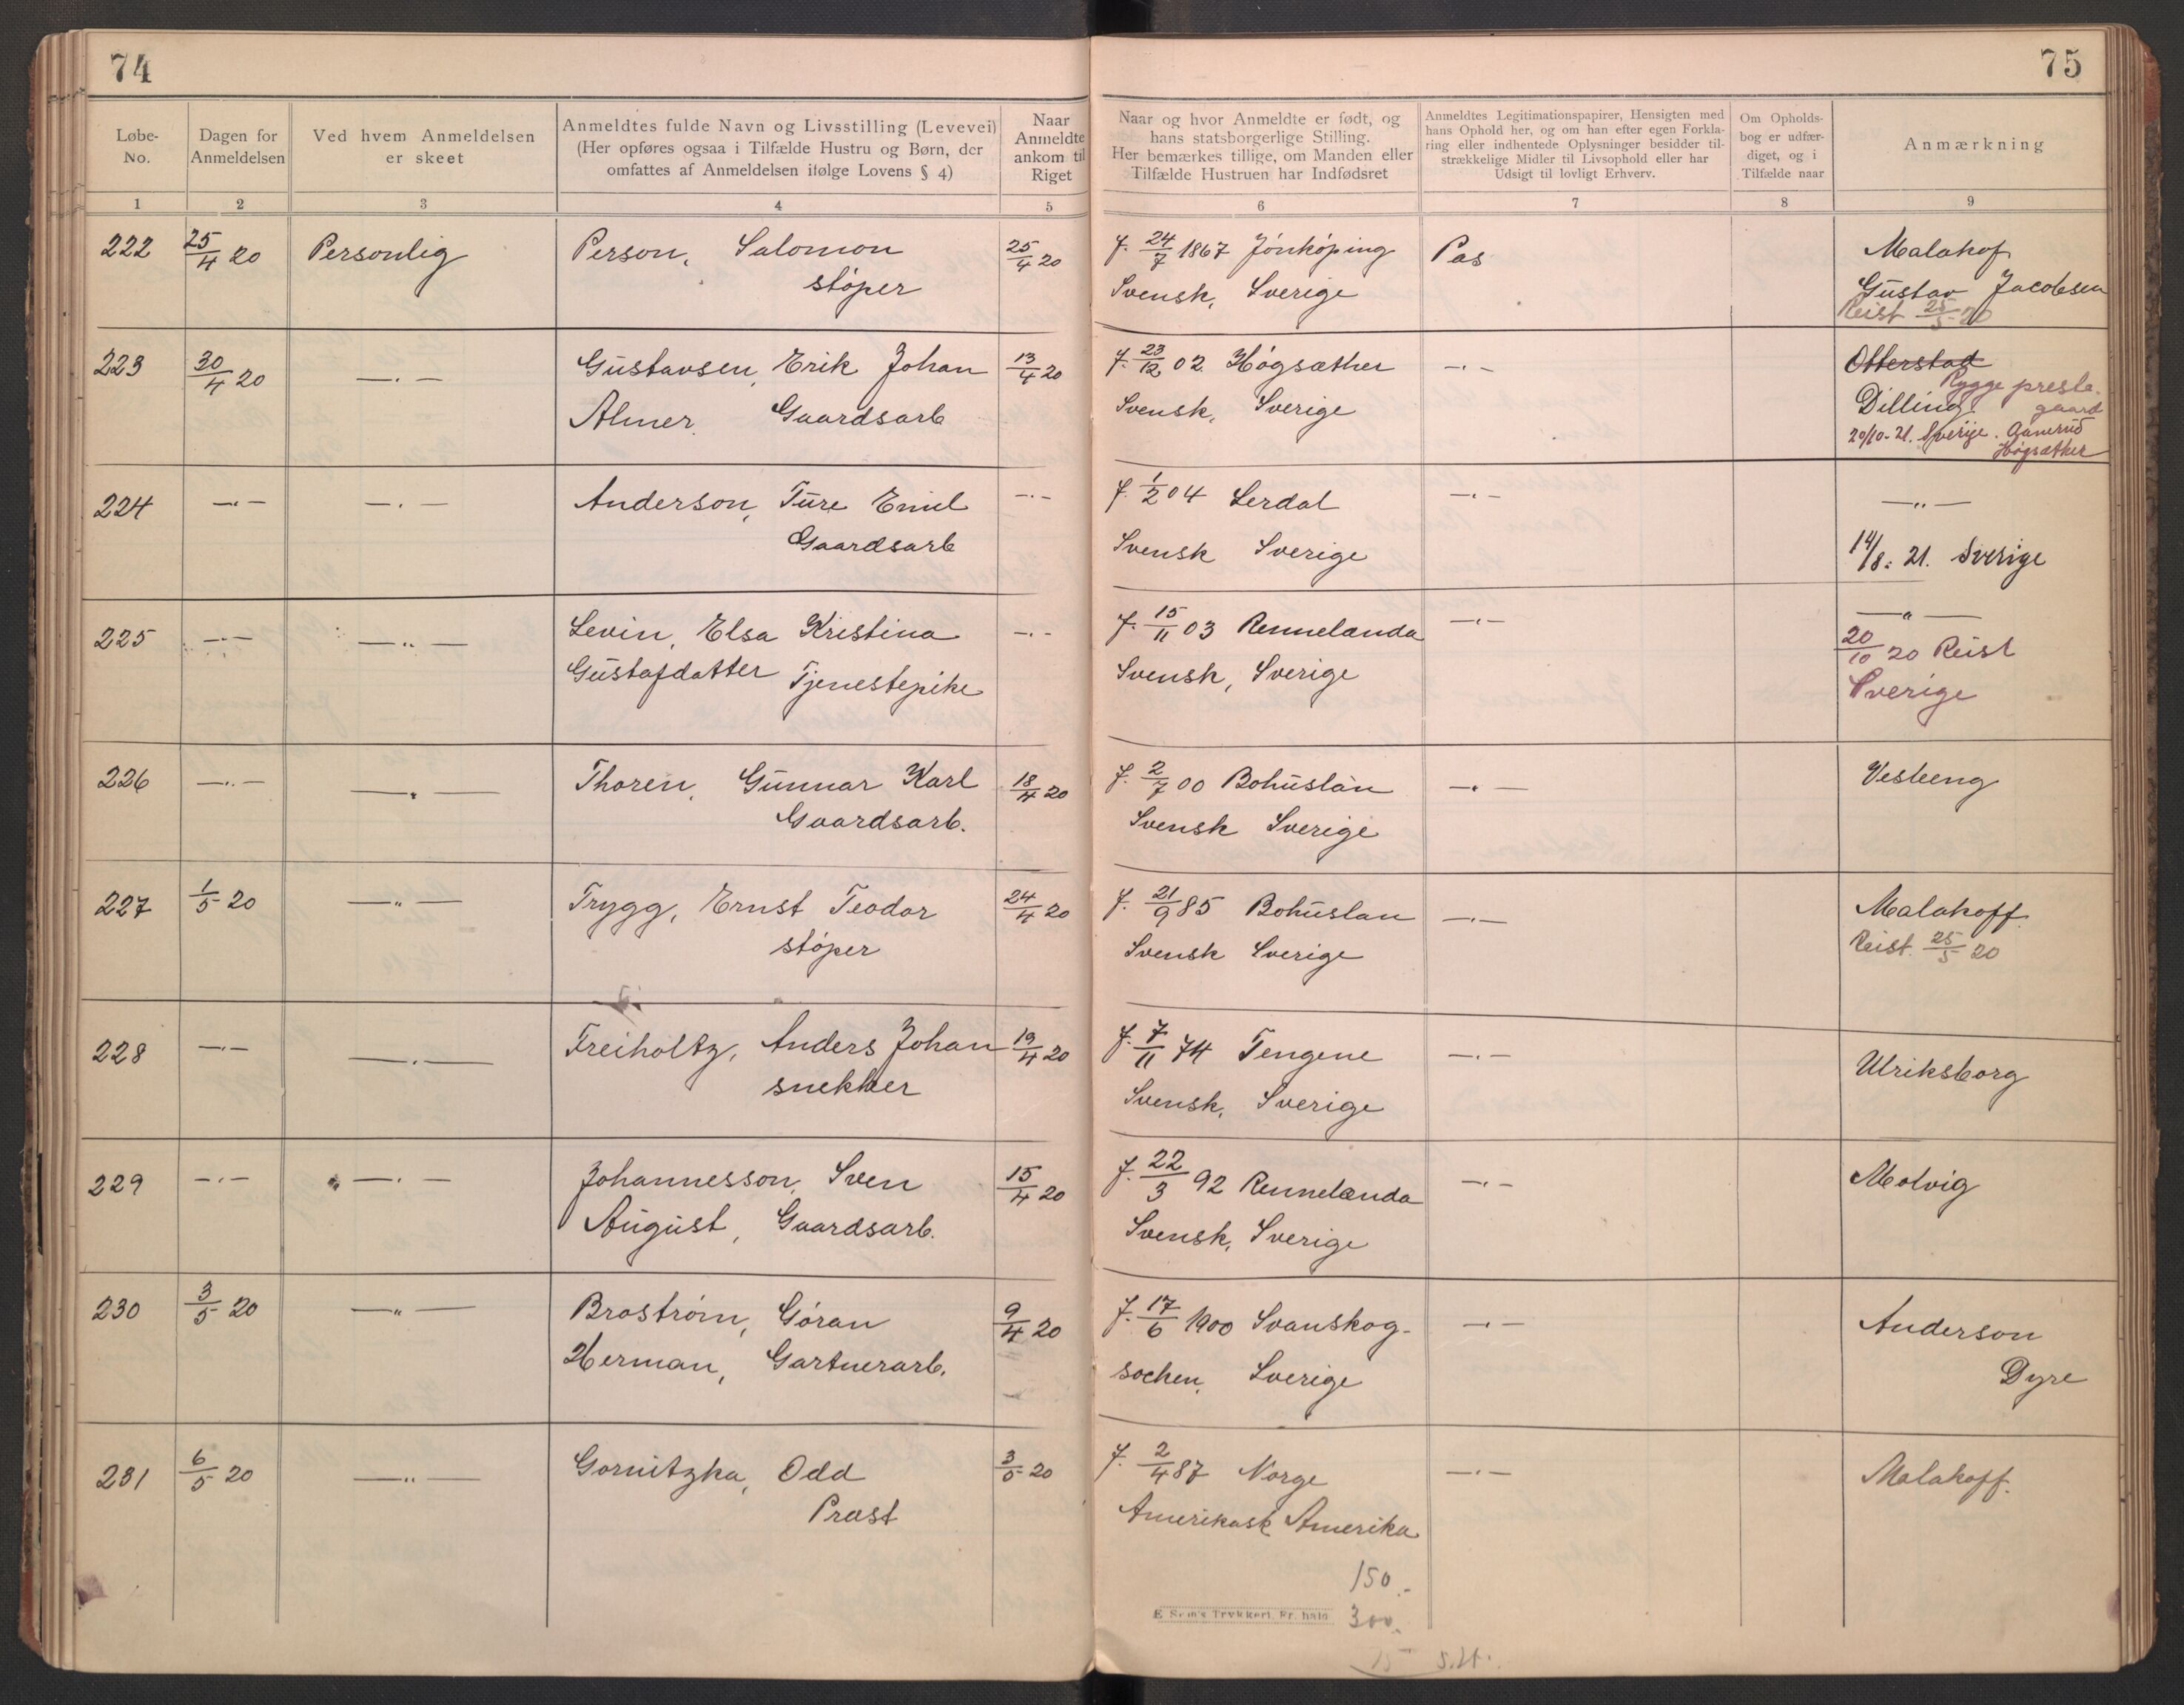 74
Løbe-No.
Dagen for Anmeldelsen
Ved hvem Anmeldelsen er skeet
Anmeldtes fulde Navn og Livsstilling (Levevei)
(Her opføres ogsaa i Tilfælde Hustru og Børn, der
omfattes af Anmeldelsen ifølge Lovens § 4)
Naar Anmeldte ankom til Riget
1 2 3 4 5
222 25/4 20 Personlig Person, Salomon 25/4 20
støper
223 30/4 20 —.— Gustavsen, Erik Johan 13/4 20
Almer. Gaardsarb
224 —.— —.— Anderson, Ture Emil —.—
Gaardsarb
225 —.— —.— Levin, Elsa Kristina —.—
Gustafdatter Tjenestepike
226 —.— —.— Thoren, Gunnar Karl 18/4 20
Gaardsarb.
227 1/5 20 —„— Trygg, Ernst Teodor 24/4 20
støper
228 —.— —.— Freiholtz, Anders Johan 19/4 20
snekker
229 —.— —.— Johannesson, Sven 15/4 20
August, Gaardsarb.
230 3/5 20 —„— Broström, Göran 9/4 20
Herman, Gartnerarb.
231 6/5 20 —„— Gornitzka, Odd 3/5 20
Prest
75
Naar og hvor Anmeldte er født, og
hans statsborgerlige Stilling.
Her bemærkes tillige, om Manden eller
Tilfælde Hustruen har Indfødsret
Anmeldtes Legitimationspapirer, Hensigten med
hans Ophold her, og om han efter egen Forkla-
ring eller indhentede Oplysninger besidder til-
strækkelige Midler til Livsophold eller har
Udsigt til lovligt Erhverv.
Om Opholds-
bog er udfær-
diget, og i
Tilfælde naar
Anmærkning
6 7 8 9
f. 24/7 1867 Jönköping Pas Malakof
Svensk, Sverige Gustav Jacobsen
Reist 25/5 20
f. 23/12 02 Högsæther —.— Otterstad
Rygge preste-
Svensk, Sverige Dilling. gaard
20/10-21. Sverige.
Högsæther
f. 1/2 04 Lerdal —.— —„—
Svensk Sverige 14/8. 21. Sverige
f. 15/11 03 Rennelanda —.— —„—
20/10 20 Reist
Svensk, Sverige Sverige
f. 2/7 00 Bohuslän —.— Vesteeng
Svensk Sverige
f. 21/9 85 Bohuslan —.— Malakoff.
Svensk Sverige Reist. 25/5 20
f. 7/11 74 Tengene —.— Ulriksborg
Svensk, Sverige
f. 22/3 92 Rennelanda —.— Molvig
Svensk, Sverige
f. 17/6 1900 Svanskog- —.— Anderson
sochen, Sverige Dyre
f. 2/4 87 Norge —.— Malakoff.
Amerikask Amerika
150.-
E Sem's Trykkeri. Fr. hald 300.
15